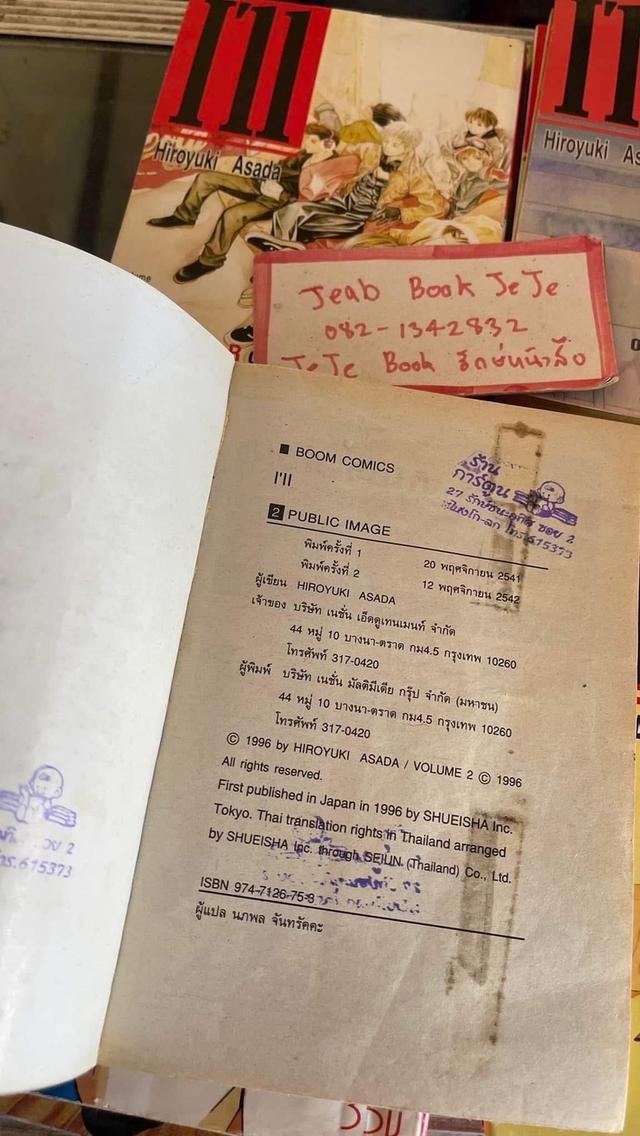 I'll
Hiroyuki Asada
I'l
Hiroyuki As
Jeab Book JeJe
082-1342832
JeJe Book รักษ์หนังสือ
■ BOOM COMICS
I'll
2 PUBLIC IMAGE
พิมพ์ครั้งที่ 1 20 พฤศจิกายน 2541
พิมพ์ครั้งที่ 2 12 พฤศจิกายน 2542
ผู้เขียน HIROYUKI ASADA
เจ้าของ บริษัท เนชั่น เอ็ดดูเทนเมนท์ จำกัด
44 หมู่ 10 บางนา-ตราด กม4.5 กรุงเทพ 10260
โทรศัพท์ 317-0420
ผู้พิมพ์ บริษัท เนชั่น มัลติมีเดีย กรุ๊ป จำกัด (มหาชน)
44 หมู่ 10 บางนา-ตราด กม4.5 กรุงเทพ 10260
โทรศัพท์ 317-0420
© 1996 by HIROYUKI ASADA / VOLUME 2 © 1996
All rights reserved.
First published in Japan in 1996 by SHUEISHA Inc.
Tokyo. Thai translation rights in Thailand arranged
by SHUEISHA Inc. through SEIUN (Thailand) Co., Ltd.
ISBN 974-7126-75-3
ผู้แปล นภพล จันทรัคคะ
ร้าน
การ์ตูน
27 ซอย 2
โทร.615373
ซอย 2
โทร.615373